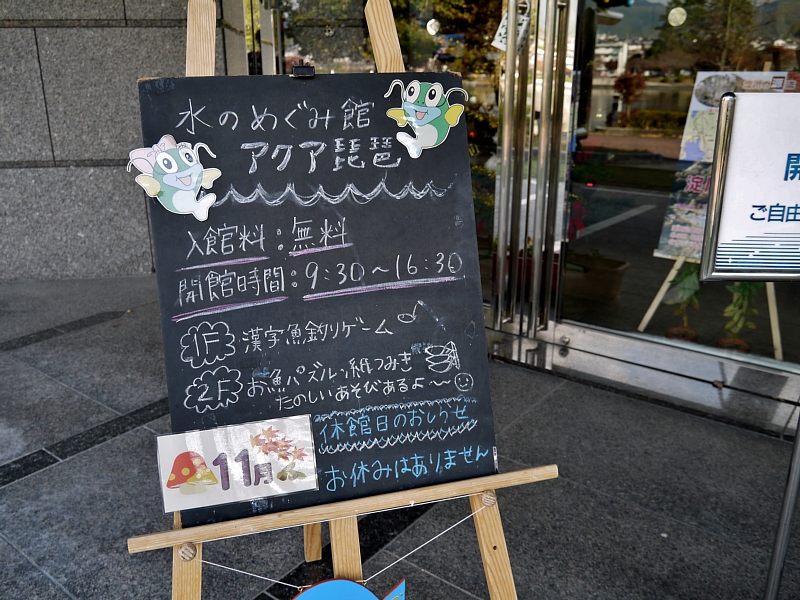 水のめぐみ館
アクア琵琶
入館料:無料
開館時間:9:30~16:30
1F 漢字魚釣りゲーム
2F お魚パズル・紙つみき
たのしいあそびあるよ~
休館日のおしらせ
11月
お休みはありません
開
ご自由